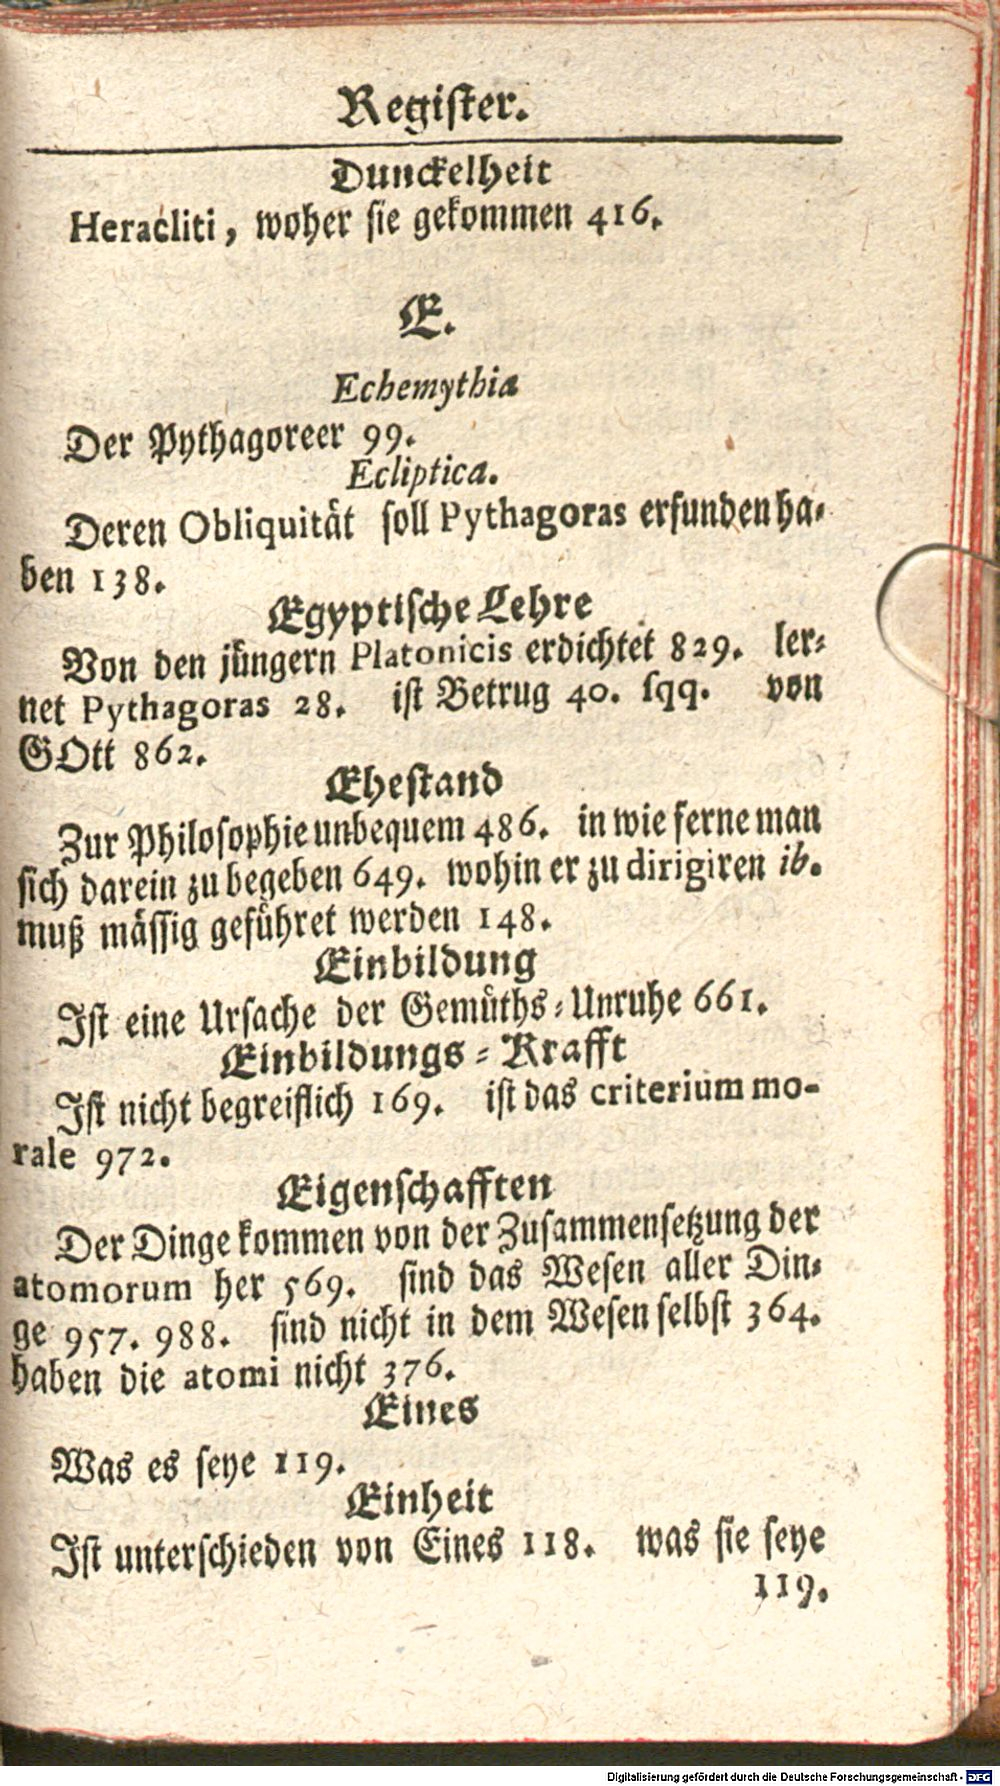 Register.
Dunckelheit
Heracliti, woher sie gekommen 416.
E.
Echemythia
Der Pythagoreer 99.
Ecliptica.
Deren Obliquität soll Pythagoras erfunden ha-
ben 138.
Egyptische Lehre
Von den jüngern Platonicis erdichtet 829. ler-
net Pythagoras 28. ist Betrug 40. sqq. von
GOtt 862.
Ehestand
Zur Philosophie unbequem 486. in wie ferne man
sich darein zu begeben 649. wohin er zu dirigiren ib.
muß mässig geführet werden 148.
Einbildung
Ist eine Ursache der Gemüths-Unruhe 661.
Einbildungs-Krafft
Ist nicht begreiflich 169. ist das criterium mo-
rale 972.
Eigenschafften
Der Dinge kommen von der Zusammensetzung der
atomorum her 569. sind das Wesen aller Din-
ge 957. 988. sind nicht in dem Wesen selbst 364.
haben die atomi nicht 376.
Eines
Was es seye 119.
Einheit
Ist unterschieden von Eines 118. was sie seye
119.
Digitalisierung gefördert durch die Deutsche Forschungsgemeinschaft - DFG